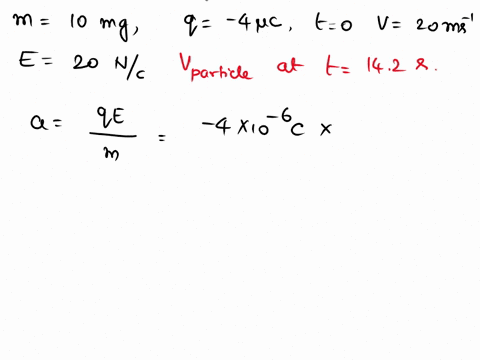 m = 10 mg, q = -4 μC, t=0 V = 20 ms⁻¹
E = 20 N/C Vparticle at t = 14.2 s.
a = qE/m = -4 × 10⁻⁶ C ×